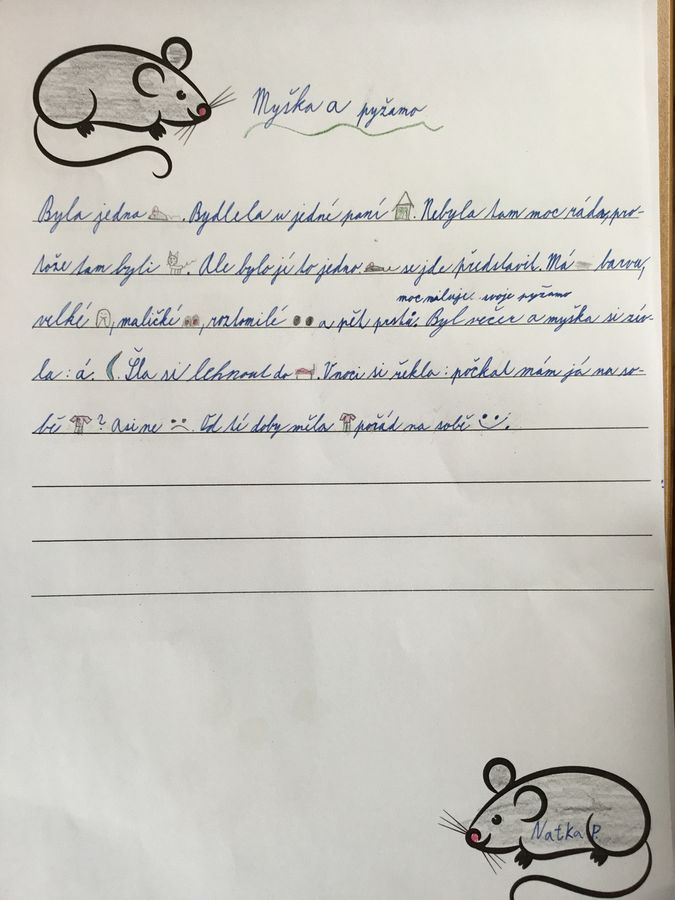 Myška a pyžamo
Byla jedna . Bydlela u jedné paní . Nebyla tam moc ráda, pro-
tože tam byli . Ale bylo jí to jedno. se jde představit. Má barvu,
velké , maličké , roztomilé a pět prstů. Byl večer a myška si zív-
moc miluje svoje pyžamo
la : á. Šla si lehnout do . V noci si řekla : počkat mám já na so-
bě ? Asi ne . Od té doby měla pořád na sobě .
Natka P.